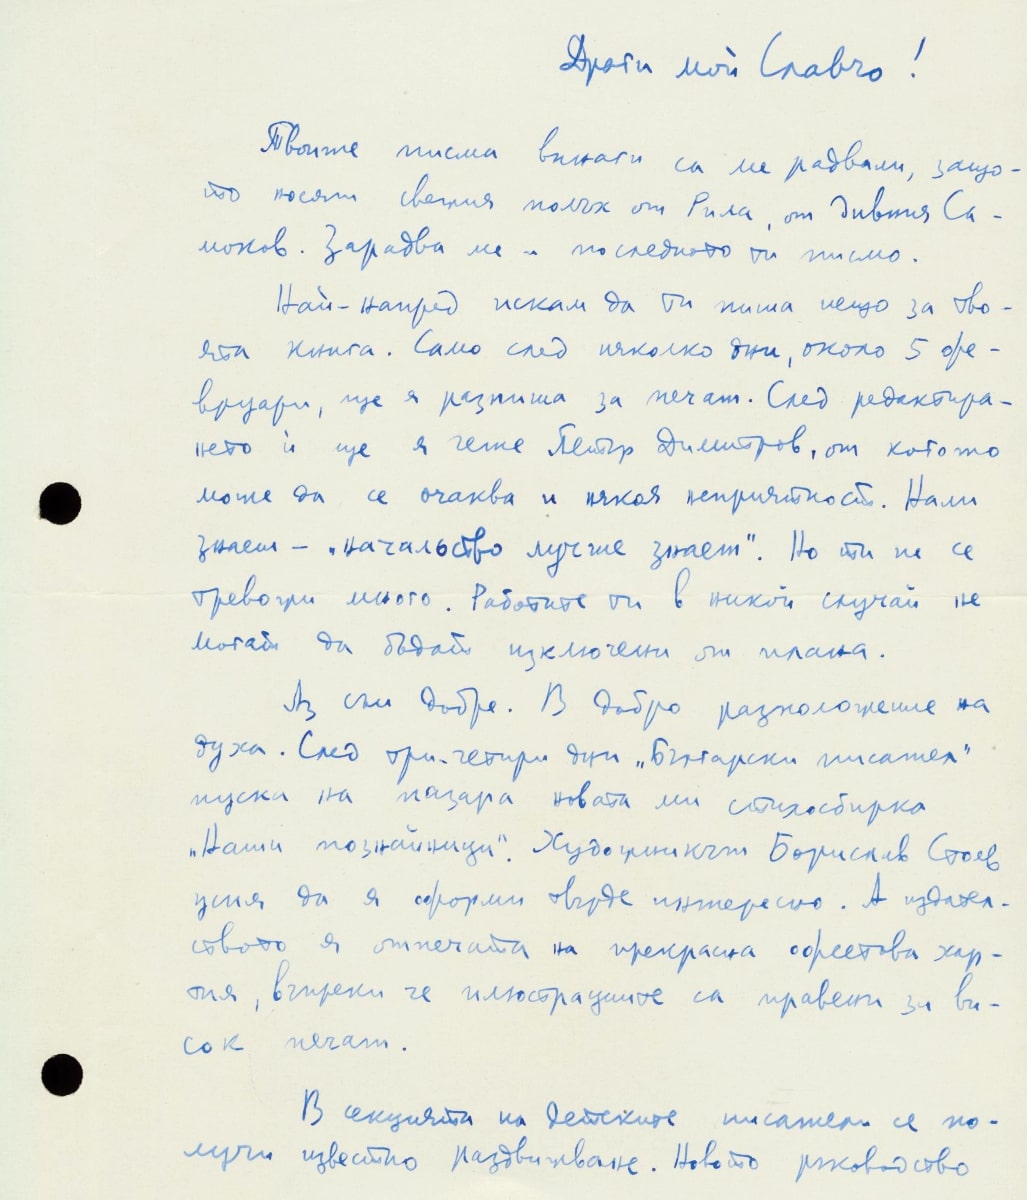 Драги мой Славчо!
Твоите писма винаги са ме радвали, защо-
то носят свежия полъх от Рила, от дивния Са-
моков. Зарадва ме и последното ти писмо.
Най-напред искам да ти пиша нещо за тво-
ята книга. Само след няколко дни, около 5 фе-
вруари, ще я разпиша за печат. След редактира-
нето ѝ ще я чете Петър Димитров, от когото
може да се очаква и някоя неприятност. Нали
знаеш – „начальство лучше знает". Но ти не се
тревожи много. Работите ти в никой случай не
могат да бъдат изключени от плана.
Аз съм добре. В добро разположение на
духа. След три-четири дни „Български писател"
пуска на пазара новата ми стихосбирка
„Наши познайници". Художникът Борислав Стоев
успя да я оформи твърде интересно. А издател-
ството я отпечата на прекрасна офсетова хар-
тия, въпреки че илюстрациите са правени за ви-
сок печат.
В секцията на детските писатели се по-
лучи известно раздвижване. Новото ръководство